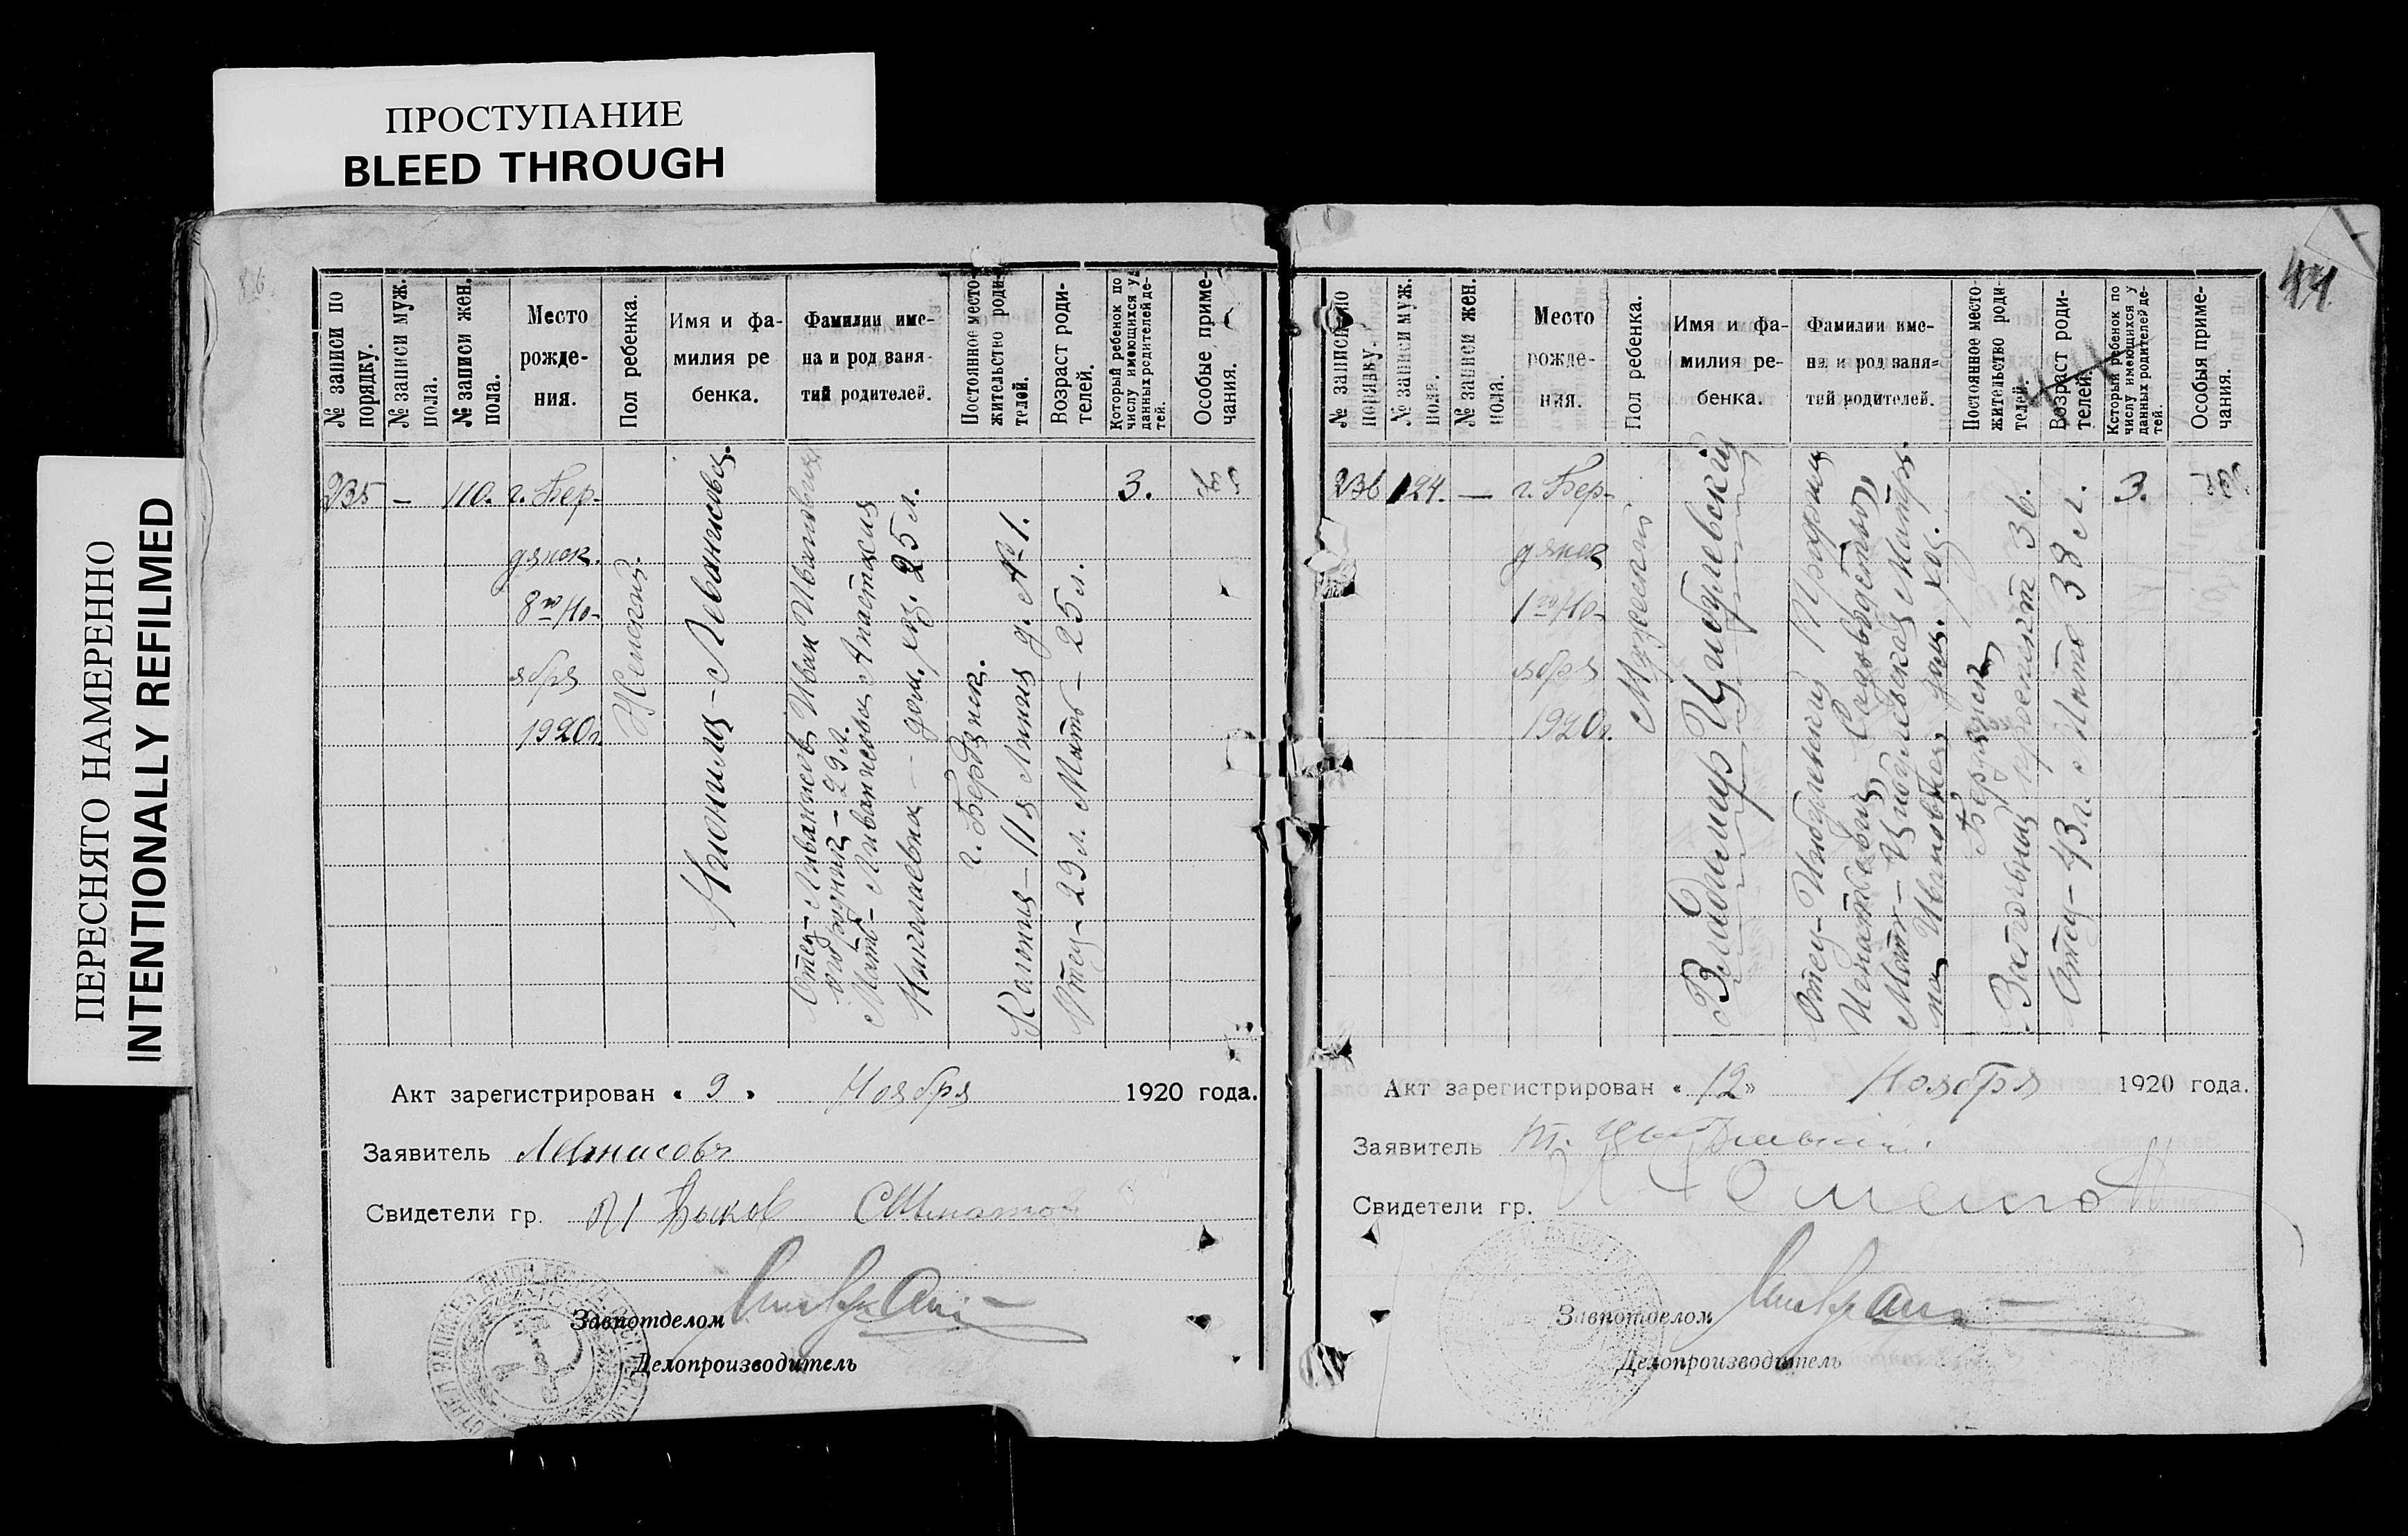 ПРОСТУПАНИЕ
BLEED THROUGH
ПЕРЕСНЯТО НАМЕРЕННО
INTENTIONALLY REFILMED
86.
№ записи по порядку.
№ записи муж. пола.
№ записи жен. пола.
Место рожде-ния.
Пол ребенка.
Имя и фа-милия ре бенка.
Фамилии име-на и род заня-тий родителей.
Постоянное место-жительство роди-телей.
Возраст роди-телей.
Который ребенок по числу имеющихся у данных родителей де-тей.
Особые приме-чания.
235
—
110.
г. Бер-
дянск.
8го Но-
ября
1920г.
Женский.
Отец — Иван Иванович
огородник — 29 л.
Мать — Анастасия
Николаевна — дом. хоз. 25 л.
г. Бердянск.
Колония — 11я Линия д. № 1.
Отец — 29 л. Мать — 25 л.
3.
Акт зарегистрирован « 9 » Ноября 1920 года.
Заявитель
Свидетели гр. Быков
Завпотделом
Делопроизводитель
44
№ записи по порядку.
№ записи муж. пола.
№ записи жен. пола.
Место рожде-ния.
Пол ребенка.
Имя и фа-милия ре-бенка.
Фамилии име-на и род заня-тий родителей.
Постоянное место-жительство роди-телей.
Возраст роди-телей.
Который ребенок по числу имеющихся у данных родителей де-тей.
Особыя приме-чания.
236
124.
—
г. Бер-
дянск
1го Но-
ября
1920г.
Мужеский
Владимир Цибулевский
Отец — Цибулевский Трофим
Игнатьевич Садоводство,
Мать — Цибулевская Матре-
на Ивановна дом. хоз.
Бердянск
проспект 36.
Отец — 43 л. Мать 38 л.
3.
Акт зарегистрирован « 12 » Ноября 1920 года.
Заявитель Т.
Свидетели гр.
Завпотделом
Делопроизводитель